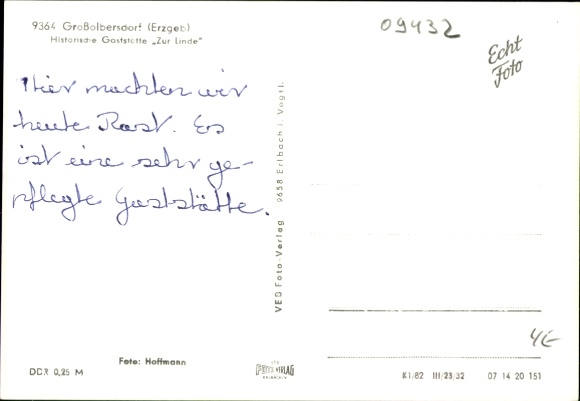 9364 Großolbersdorf (Erzgeb)
Historische Gaststätte „Zur Linde"
09432
Echt
Foto
Hier machten wir
heute Rast. Es
ist eine sehr ge-
pflegte Gaststätte.
VEB Foto-Verlag 9658 Erlbach i. Vogtl.
4€
Foto: Hoffmann
DDR 0,25 M
FOTO VERLAG
K1/82 III/23/32 07 14 20 151